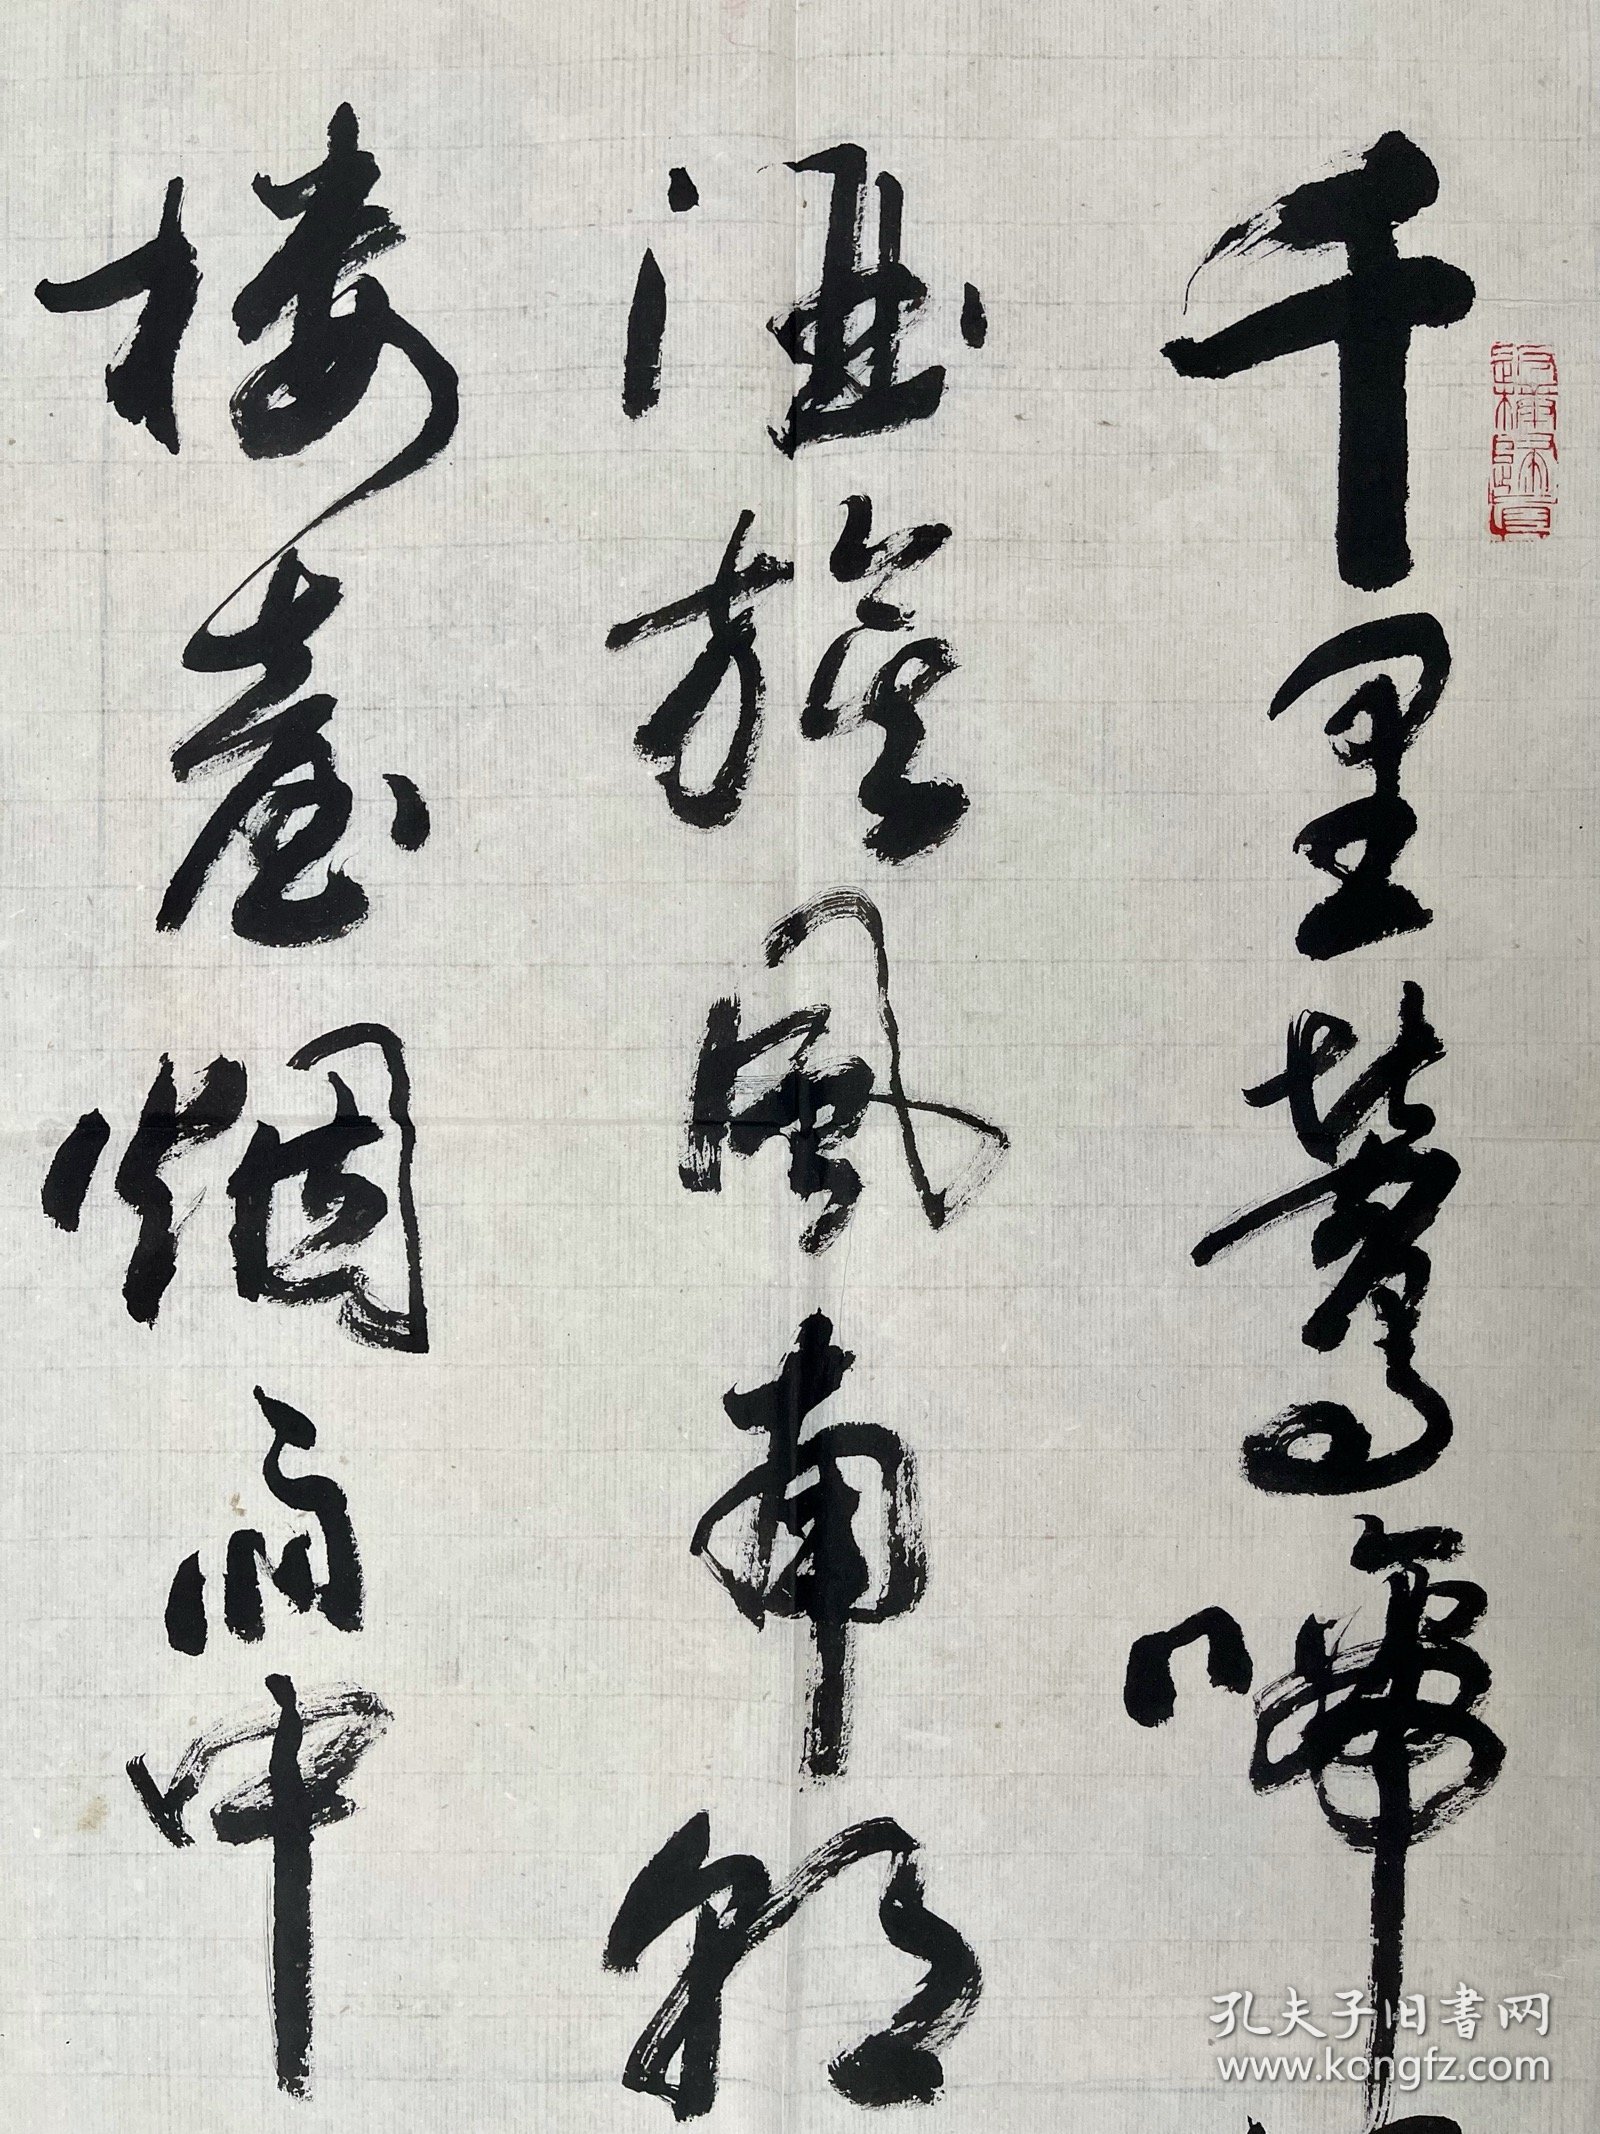 千里鶯啼
酒旗風南朝
樓臺烟雨中
返樸歸真
孔夫子旧书网
www.kongfz.com